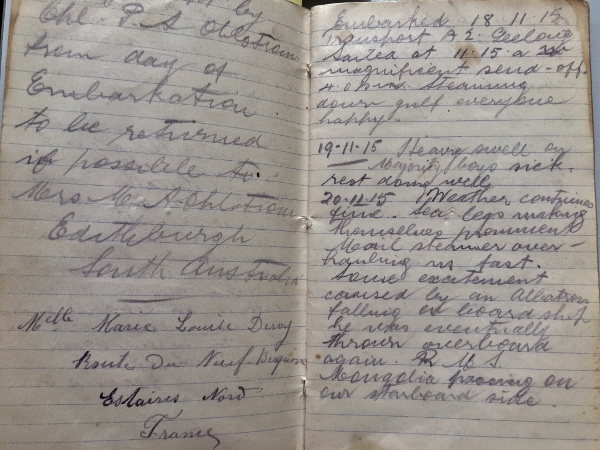 by
Chl. P. A Ohlstrom
from day of
Embarkation.
to be returned
if possible to.
Mrs M. A. Ohlstrom
Edithburgh
South Australia
Mlle Marie Louise Deroy
Route Du Neuf Berquin
Estaires Nord
France
Embarked 18.11.15
Transport A 2. Geelong
Sailed at 11.15. a
magnificent send-off.
4.0 p.m. Steaming
down gulf everyone
happy.
19.11.15 Heavy swell on
Majority boys sick.
rest doing well
20.11.15 Weather continues
fine. Sea-legs making
themselves prominent
Mail steamer over-
hauling us fast.
Some excitement
caused by an Albatross
falling on board ship
he was eventually
thrown overboard
again. R M S.
Mongolia passing on
our starboard side.